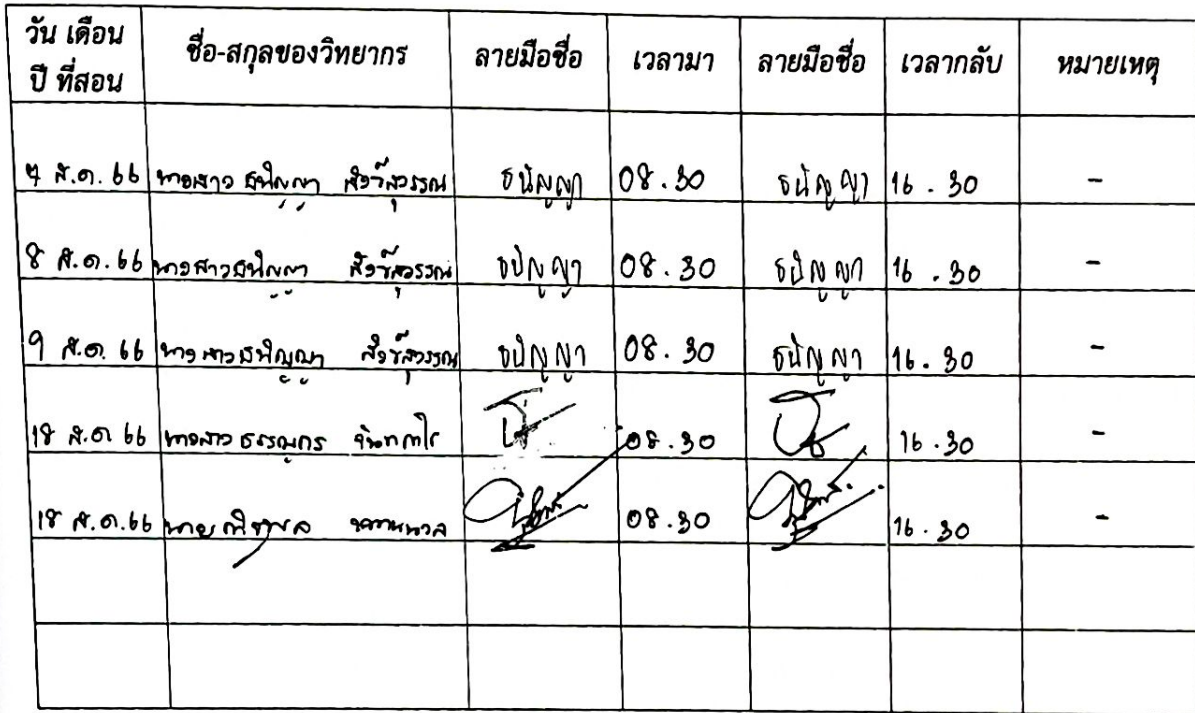 วัน เดือน ปี ที่สอน ชื่อ-สกุลของวิทยากร ลายมือชื่อ เวลามา ลายมือชื่อ เวลากลับ หมายเหตุ
7 ส.ค. 66 นางสาว ธนัญญา สังข์สุวรรณ ธนัญญา 08.30 ธนัญญา 16.30 -
8 ส.ค. 66 นางสาวธนัญญา สังข์สุวรรณ ธนัญญา 08.30 ธนัญญา 16.30 -
9 ส.ค. 66 นางสาวธนัญญา สังข์สุวรรณ ธนัญญา 08.30 ธนัญญา 16.30 -
18 ส.ค. 66 นางสาว 08.30 16.30 -
18 ส.ค. 66 นาย 08.30 16.30 -